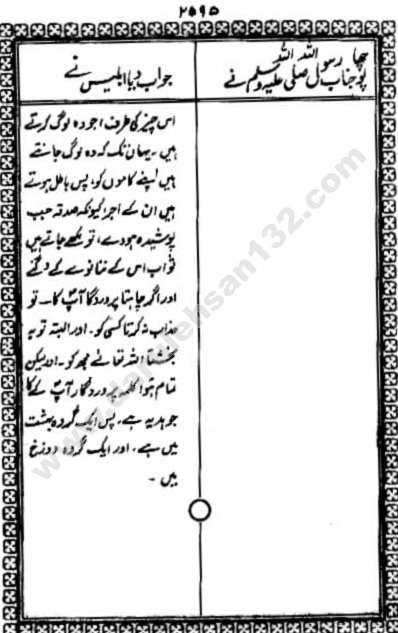 ۲۵۹۵
پوچھا جناب رسول اللہ صلی اللہ علیہ وسلم نے
جواب دیا ابلیس نے
اس چیز کی طرف جو وہ لوگ کرتے
ہیں۔ یہاں تک کہ وہ لوگ جانتے
ہیں اپنے کاموں کو، پس باطل ہوتے
ہیں ان کے اجر کیونکہ صدقہ جب
پوشیدہ ہووے، تو لکھے جاتے ہیں
ثواب اس کے ننانوے کے دگنے
اور اگر چاہتا پروردگار آپؐ کا۔ تو
عذاب نہ کرتا کسی کو۔ اور البتہ توبہ
بخشتا اللہ تعالے مجھ کو۔ اور لیکن
تمام ہوا کلمہ پروردگار آپؐ کے کا
جو ہدیہ ہے۔ پس ایک گروہ بہشت
میں ہے۔ اور ایک گروہ دوزخ
میں۔
www.dawatehsan132.com